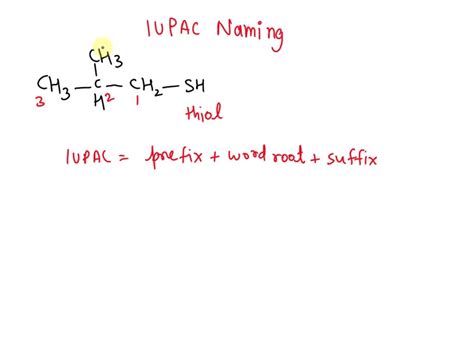 IUPAC Naming
CH3
CH3-C-CH2-SH
3 H 2 1
thiol
IUPAC = prefix + word root + suffix